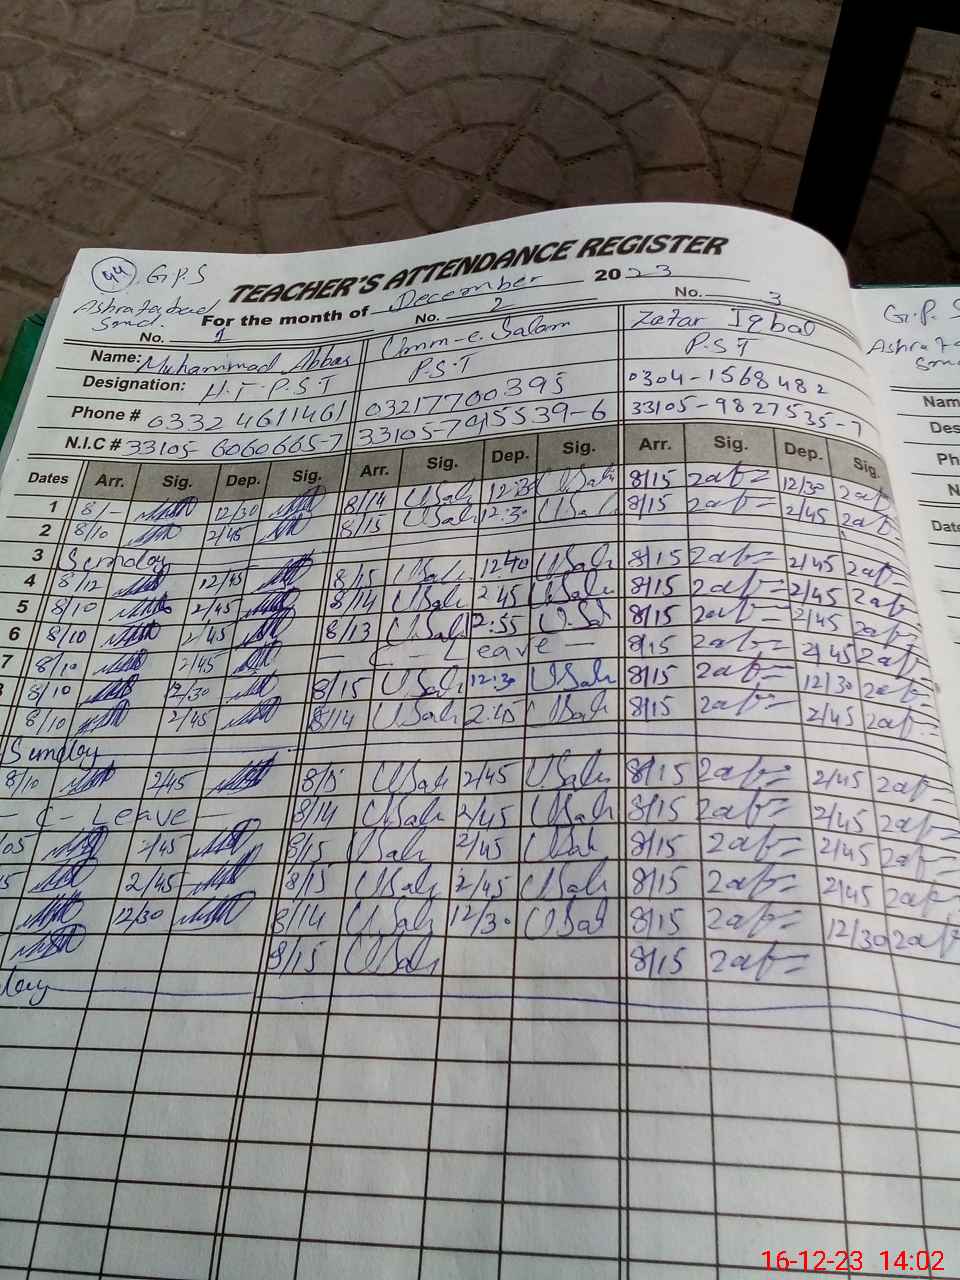 44 G.P.S
TEACHER'S ATTENDANCE REGISTER
Ashrafabad Smd.
For the month of December 2023
No. 1 No. 2 No. 3
Name: Muhammad Abbas Umm-e-Salam Zafar Iqbal
Designation: H.T-P.S.T P.S.T P.S.T
Phone # 0332 4611461 03217700395 0304-1568482
N.I.C # 33105-6060665-7 33105-7915539-6 33105-9827535-7
Dates Arr. Sig. Dep. Sig. Arr. Sig. Dep. Sig. Arr. Sig. Dep. Sig.
1 8/- 12/30 8/14 USalı 12:30 USalı 8/15 Zaf 12/30 Zaf
2 8/10 2/45 8/15 USalı 12:30 USalı 8/15 Zaf 2/45 Zaf
3 Sunday
4 8/12 12/45 8/15 USalı 12:40 USalı 8/15 Zaf 2/45 Zaf
5 8/10 2/45 8/14 USalı 2:45 USalı 8/15 Zaf 2/45 Zaf
6 8/10 2/45 8/13 USalı 2:55 USal 8/15 Zaf 2/45 Zaf
7 8/10 2/45 - C - Leave - 8/15 Zaf 2/45 Zaf
8/10 12/30 8/15 USalı 12:30 USalı 8/15 Zaf 12/30 Zaf
8/10 2/45 8/14 USalı 2:45 USalı 8/15 Zaf 2/45 Zaf
Sunday
8/10 2/45 8/15 USalı 2/45 USalı 8/15 Zaf 2/45 Zaf
- C - Leave - 8/14 USalı 2/45 USalı 8/15 Zaf 2/45 Zaf
05 2/45 8/15 USalı 2/45 USal 8/15 Zaf 2/45 Zaf
5 2/45 8/15 USalı 2/45 USalı 8/15 Zaf 2/45 Zaf
12/30 8/14 USalı 12/30 USal 8/15 Zaf 12/30 Zaf
8/15 USalı 8/15 Zaf
day
G.P.S
Ashrafa
Smd
Nam
Des
Ph
N
Date
16-12-23 14:02